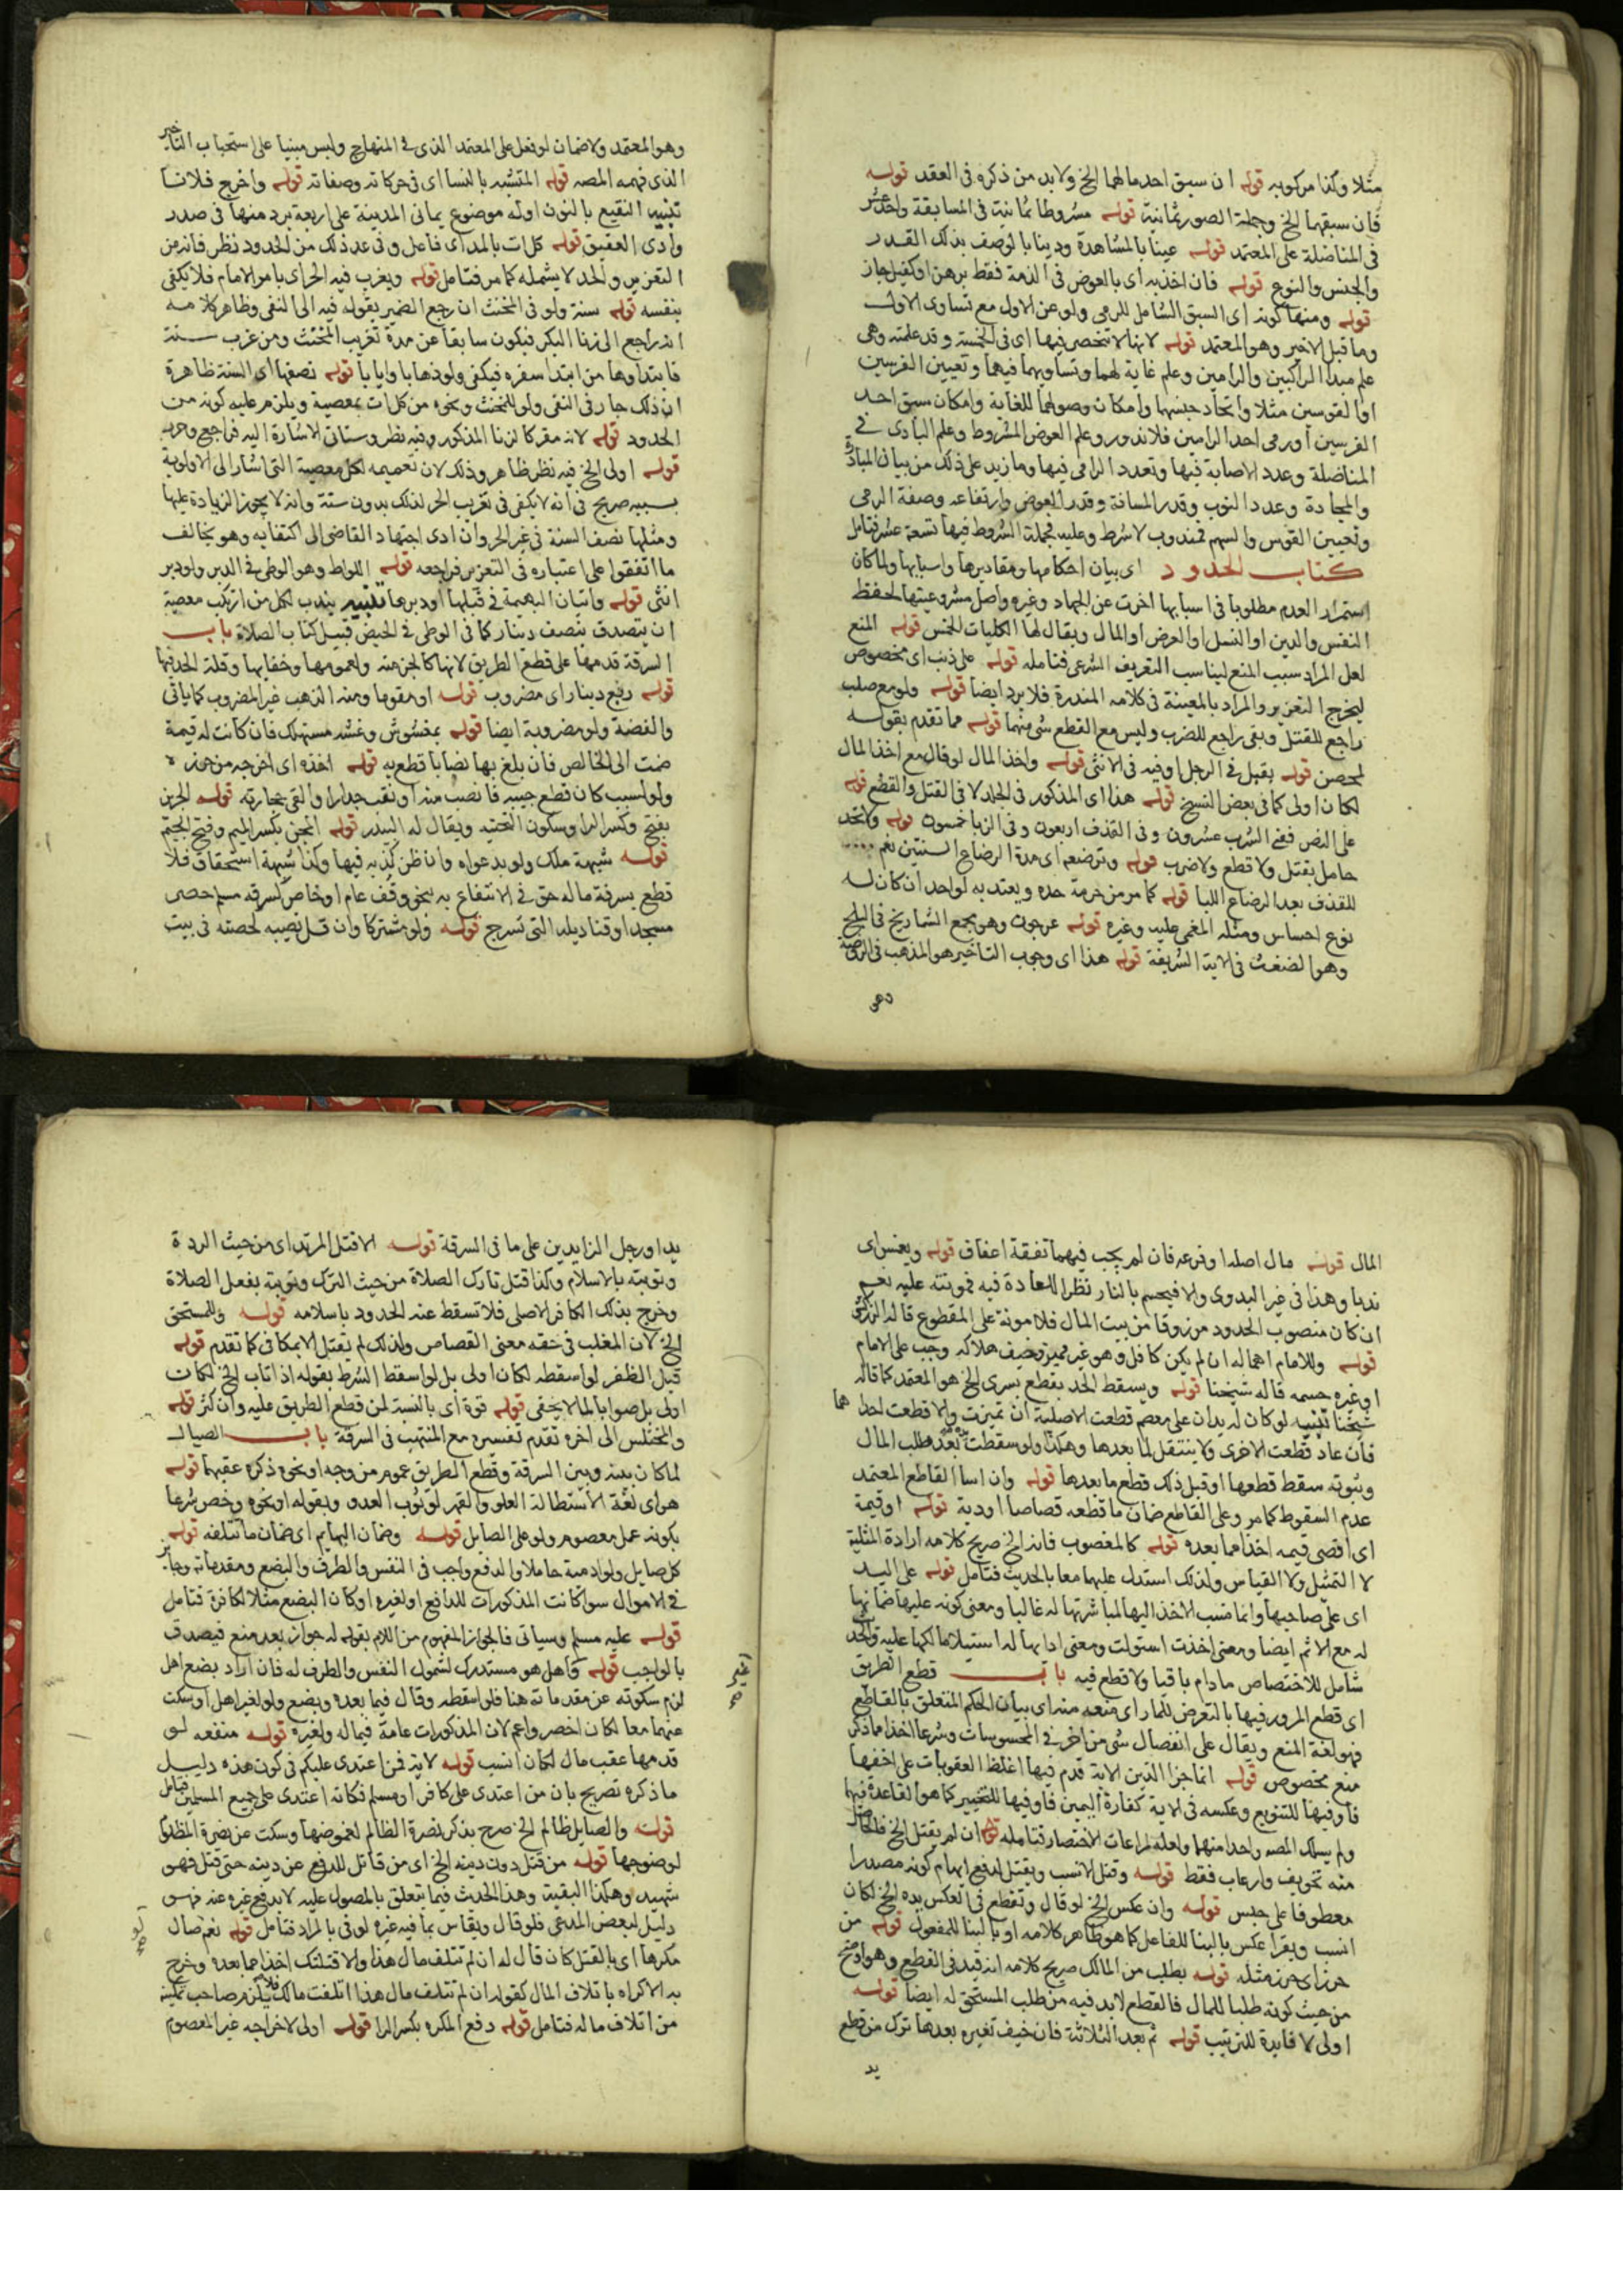 مثلا وكذا مركوبه قوله ان سبق احدهما لهما الخ ولا بد من ذكره فى العقد قوله
فان سبقهما الخ وجملة الصور ثمانية قوله مشروطا ثمانية فى المسابقة واحد عشر
فى المناضلة على المعتمد قوله عينا بالمشاهدة ودينا بالوصف بذلك القدر
والجنس والنوع قوله فان اخذ به اى بالعوض فى الذمة فقط برهن او كفيل جاز
قوله ومنها كونه اى السبق الشامل للرمى ولو عن الاول مع تساوى الاول
وما قبل الاخير وهو المعتمد قوله لانها لا تنحصر فيها اى فى الخمسة وقد علمته وهى
علم مبدا الراكبين والرامين وعلم غاية لهما وتساويهما فيهما وتعيين الفرسين
او القوسين مثلا واتحاد جنسهما وامكان وصولهما للغاية وامكان سبق احد
الفرسين او رمى احد الرامين فلا ندور وعلم العوض المشروط وعلم البادى فى
المناضلة وعدد الاصابة فيها وتعدد الرامى فيها وما زيد على ذلك من بيان المبادرة
والمحادة وعدد النوب وقدر المسافة وقدر العوض وارتفاعه وصفة الرمى
وتعيين القوس والسهم فمندوب لا شرط وعليه فجملة الشروط فيها تسعة عشر فتامل
كتاب الحدود اى بيان احكامها ومقاديرها واسبابها ولما كان
استمرار العدم مطلوبا فى اسبابها اخرت عن الجهاد وغيره واصل مشروعيتها لحفظ
النفس والدين او النسل او العرض او المال ويقال لها الكليات الخمس قوله المنع
لعل المراد سبب المنع ليناسب التعريف الشرعى فتامله قوله على ذنب اى مخصوص
ليخرج التعزير والمراد بالمعينة فى كلامه المقدرة فلا يرد ايضا قوله ولو مع صلب
راجع للقتل وبقى راجع للضرب وليس مع القطع شى منهما قوله مما تقدم بقوله
لمحصن قوله بقبل فى الرجل او فيه فى الانثى قوله واخذ المال لو قال مع اخذ المال
لكان اولى كما فى بعض النسخ قوله هذا اى المذكور فى الجلد لا فى القتل والقطع قوله
على النص ففى الشرب عشرون وفى القذف اربعون وفى الزنا خمسون قوله ولا تحد
حامل بقتل ولا قطع ولا ضرب قوله وترضعه اى مدة الرضاع السنتين نعم
للقذف بعد الرضاع اللبا قوله كما مر من حرمة حده ويعتد به لو احد ان كان له
نوع احساس ومثله المغمى عليه وغيره قوله عرجون وهو مجمع الشماريخ فى البلح
وهو الضغث فى الاية الشريفة قوله هذا اى وجوب التاخير هو المذهب فى الروضة
وهو
وهو المعتمد ولا ضمان لو فعل على المعتمد الذى فى المنهاج وليس مبنيا على استحباب التاخير
الذى فهمه المصه قوله المتشبه بالنسا اى فى حركاته وصفاته قوله واخرج فلانا
تنبيه النقيع بالنون اوله موضوع يمانى المدينة على اربعة برد منها فى صدر
وادى العقيق قوله كلات بالمد اى فاعل وفى عد ذلك من الحدود نظر فانه من
التعزير والحد لا يشمله كما مر فتامل قوله ويغرب فيه الحر اى بامر الامام فلا يكفى
بنفسه قوله سنة ولو فى المخنث ان رجع الضمير بقوله فيه الى النفى وظاهر كلامه
انه راجع الى زنا البكر فيكون سابقا عن مدة تغريب المخنث ومن غرب سنة
فابتداوها من ابتدا سفره فيكفى ولو ذهابا وايابا قوله نصفها اى السنة ظاهره
ان ذلك جار فى النفى ولو للمخنث ونحوه من كلات بمعصية ويلزم عليه كونه من
الحدود قوله لانه مقر كالزنا المذكور وفيه نظر وستاتى الاشارة اليه فراجع وحرر
قوله اولى الخ فيه نظر ظاهر وذلك لان تعميمه لكل معصية التى اشار الى الاولوية
بسببه صريح فى انه لا يكفى فى تغريب الحر لذلك بدون سنة وانه لا يجوز الزيادة عليها
ومثلها نصف السنة فى غير الحر وان ادى اجتهاد القاضى الى اكتفايه وهو يخالف
ما اتفقوا على اعتباره فى التعزير فراجعه قوله اللواط وهو الوطى فى الدبر ولو دبر
انثى قوله واتيان البهيمة فى قبلها او دبرها تنبيه يندب لكل من ارتكب معصية
ان يتصدق بنصف دينار كما فى الوطى فى الحيض قبيل كتاب الصلاة باب
السرقة قدمها على قطع الطريق لانها كالجز منه ولعمومها وخفايها وقلة الحد فيها
قوله ربع دينار اى مضروب قوله او مقوما ومنه الذهب غير المضروب كما ياتى
والفضة ولو مضروبة ايضا قوله بمغشوش وغشه مستهلك فان كانت له قيمة
ضمت الى الخالص فان بلغ بها نصابا قطع به قوله اخذه اى اخرجه من حرزه
ولو لسبب كان قطع جيبه فانصب منه او نقب جدارا والقى حجارته قوله الجرين
بفتح وكسر الرا وسكون التحتيه ويقال له البيدر قوله المجن بكسر الميم وفتح الجيم
قوله شبهة ملك ولو بدعواه وان ظن كذبه فيها وكذا شبهة استحقاق فلا
قطع بسرقة ماله حق فى الانتفاع به نحو وقف عام او خاص كسرقه مسلم حصر
مسجد او قناديله التى تسرج قوله ولو مشتركا وان قل نصيبه لحصته فى بيت
المال قوله مال اصله او فرعه فان لم يجب فيهما نفقة اعفاف قوله ويغمس اى
ندبا وهذا فى غير البدوى والا فيحسم بالنار نظرا للعادة فيه فمونته عليه نعم
ان كان منصوب الحدود مرزوقا من بيت المال فلا مونة على المقطوع قاله الزركشى
قوله وللامام اهماله ان لم يكن كافل وهو غير مميز وخيف هلاكه وجب على الامام
او غيره حسمه قاله شيخنا قوله ويسقط الحد بقطع يسرى الخ هو المعتمد كما قاله
شيخنا تنبيه لو كان له يدان على معصم قطعت الاصلية ان تميزت والا قطعت احداهما
فان عاد قطعت الاخرى ولا ينتقل لما بعدها وهكذا ولو سقطت يده بعد طلب المال
وثبوته سقط قطعها او قبل ذلك قطع ما بعدها قوله وان اسا القاطع المعتمد
عدم السقوط كما مر وعلى القاطع ضمان ما قطعه قصاصا او دية قوله او قيمة
اى اقصى قيمه اخذا مما بعده قوله كالمغصوب فانه الخ صريح كلامه ارادة المثلية
لا التمثيل ولا القياس ولذلك استدل عليهما معا بالحديث فتامل قوله على اليد
اى على صاحبها وانما نسب الاخذ اليها لمباشرتها له غالبا ومعنى كونه عليها ضمانها
له مع الاثم ايضا ومعنى اخذت استولت ومعنى ادايها له استيلا مالكها عليه والحد
شامل للاختصاص ما دام باقيا ولا قطع فيه باب قطع الطريق
اى قطع المرور فيها بالتعرض للمار اى منعه منه اى بيان الحكم المتعلق بالقاطع
فهو لغة المنع ويقال على انفصال شى من اخر فى المحسوسات وشرعا اخذا مما ذكر
منع مخصوص قوله انما جزا الذين الاية قدم فيها اغلظ العقوبات على اخفها
فاو فيها للتنويع وعكسه فى الاية كفارة اليمين فاو فيها للتخيير كما هو القاعدة فيهما
ولم يسلك المصه واحدا منهما ولعله لمراعات الاختصار فتامله قوله ان لم يقتل الخ فالحاصل
منه تخويف وارعاب فقط قوله وقتل الانسب ويقتل لدفع ايهام كونه مصدرا
معطوفا على حبس قوله وان عكس الخ لو قال وتقطع فى العكس يده الخ لكان
انسب ويقرا عكس بالبنا للفاعل كما هو ظاهر كلامه او بالبنا للمفعول قوله من
حرز اى حرز مثله قوله بطلب من المالك صريح كلامه انه قيد فى القطع وهو اوضح
من حيث كونه طلبا للمال فالقطع لا بد فيه من طلب المستحق له ايضا قوله
اولى لا فايدة للترتيب قوله ثم بعد الثلاثة فان خيف تغيره بعدها ترك من قطع
يد
يد او رجل الزايدين على ما فى السرقة قوله الا قتل المرتد اى من حيث الردة
وتوبته بالاسلام وكذا قتل تارك الصلاة من حيث الترك وتوبته بفعل الصلاة
وخرج بذلك الكافر الاصلى فلا تسقط عنه الحدود باسلامه قوله وللمستحق
الخ لان المغلب فى حقه معنى القصاص ولذلك لم يقتل الا بمكافى كما تقدم قوله
قبل الظفر لو اسقطه لكان اولى بل لو اسقط الشرط بقوله اذا تاب الخ لكان
اولى بل صوابا لما لا يخفى قوله قوة اى بالنسبة لمن قطع الطريق عليه وان كثر قوله
والمختلس الى اخره تقدم تفسيره مع المنتهب فى السرقة باب الصيال
لما كان بينه وبين السرقة وقطع الطريق عموم من وجه او نحوه ذكره عقبهما قوله
هو اى لغة الاستطالة العلو والقهر لوثوب العدو وبقوله او نحوه وخص شرعا
بكونه عمل معصوم ولو على الصايل قوله وضمان البهايم اى ضمان ما تتلفه قوله
كل صايل ولو ادمية حاملا والدفع واجب فى النفس والطرف والبضع ومقدماته وجايز
فى الاموال سوا كانت المذكورات للدافع او لغيره او كان البضع مثلا لكافرة فتامل
قوله عليه مسلم وسياتى فالجواز المفهوم من اللام بقوله له جواز بعد منع فيصدق
بالواجب قوله واهل هو مستدرك لشمول النفس والطرف له فان اراد بضع اهل
لزم سكوته عن مقدماته هنا فلو اسقطه وقال فيما بعده وبضع ولو لغير اهل او سكت
عنهما معا لكان اخصر واعم لان المذكورات عامة فيما له ولغيره قوله منفعه لو
قدمها عقب مال لكان انسب قوله لاية فمن اعتدى عليكم فى كون هذه دليل
ما ذكره تصريح بان من اعتدى على كافر او مسلم فكانه اعتدى على جميع المسلمين فتامل
قوله والصايل ظالم الخ صرح بذكر نصرة الظالم لغموضها وسكت عن نصرة المظلوم
لوضوحها قوله من قتل دون دينه الخ اى من قاتل للدفع عن دينه حتى قتل فهو
شهيد وهكذا البقية وهذا الحديث فيما يتعلق بالمصول عليه لا بدفع غيره عنه فهو
دليل لبعض المدعى فلو قال ويقاس بما فيه غيره لوفى بالمراد فتامل قوله نعم صال
مكرها اى بالقتل كان قال له ان لم تتلف مال هذا والا قتلتك اخذا مما بعده وخرج
به الاكراه باتلاف المال كقوله ان لم تتلف مال هذا اتلفت مالك فلا يلزم صاحب تمكينه
من اتلاف ماله فتامل قوله دفع المكره بكسر الرا قوله اولى لاخراجه غير المعصوم